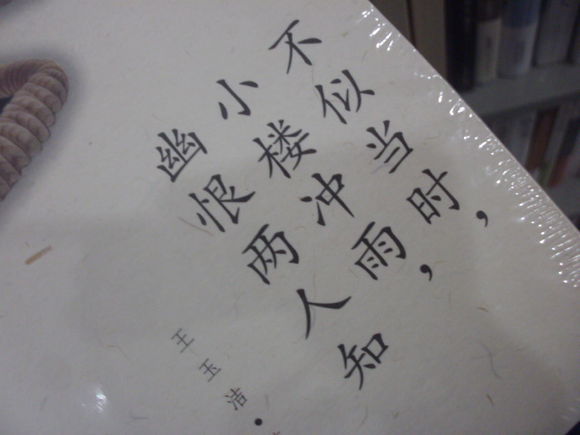 不似当时，
小楼冲雨，
幽恨两人知
王玉洁·